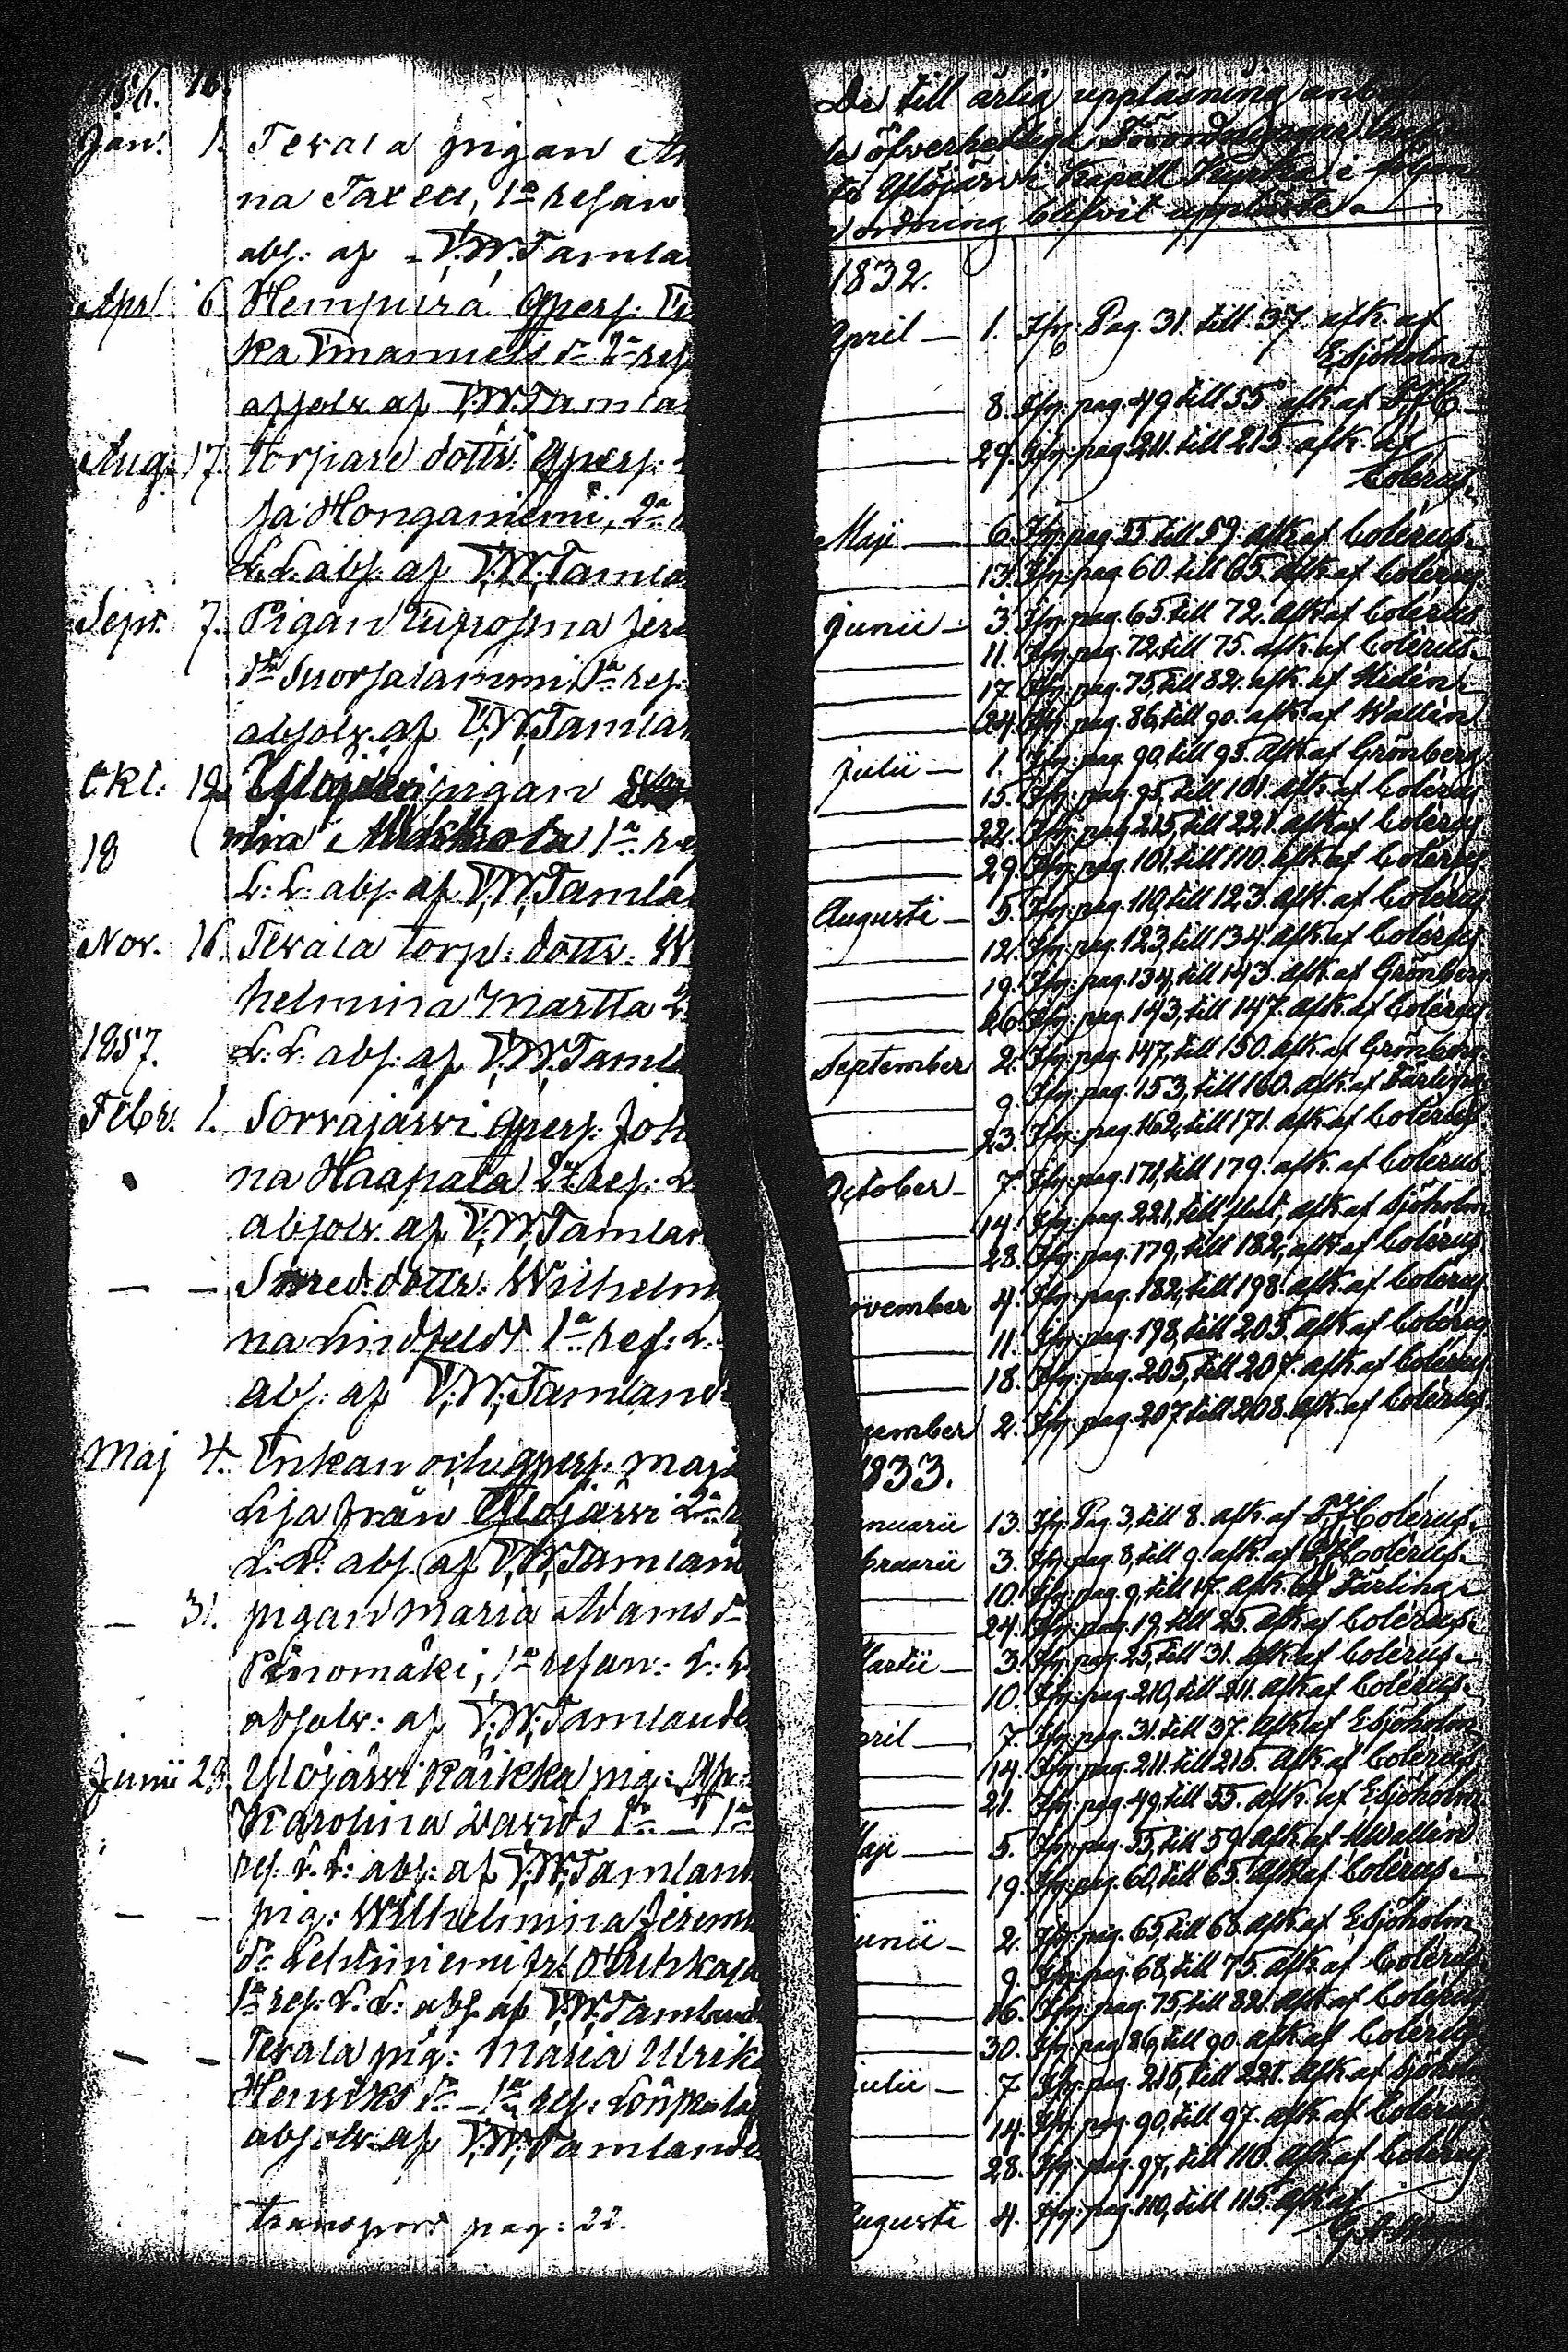 Jan. 1. Terala pigan
na Taxell, 1a resan
abs: af V:W:Tamla
Apr. 6. Hempura Qpers:
ka Emanuels dr 2a res
absolv. af V:W:Tamla
Aug: 17. torpare dottr: Qpers:
sa Honganiemi, 2a
L:L: abs: af V:W:Tamla
Sept. 7. Pigan Eufrosina Jere
dr Suorsalammi, 1a res:
absolv. af V:W:Tamlan
Okt: 12. Ylöjärvi pigan
mina 1a re
18
L:L: abs: af V:W:Tamla
Nov. 16. Terala torp: dottr. W
helmina Martta 2
1857.
L:L: abs: af V:W:Tamla
Febr. 1. Sorvajärvi Qpers: Joh
na Haapala 2a res:
absolv. af V:W:Tamlan
— — Smed: dottr. Wilhelm
na Lindfeldt 1a res: L:
abs: af V:W:Tamland
Maj 4. Enkan och Qpers: Maja
Lisa från Ylöjärvi 2a
L:L: abs: af V:W:Tamland
— 31. pigan Maria Adams dr
1a resan: L:
absolv: af V:W:Tamlande
Junii 28. Ylöjärvi Räikka pig:
Karolina Davids dr — 1a
res: L:L: abs: af V:W:Tamlan
— — pig: Wilhelmina Jerem
dr Lehtiniemi fr:
1a res: L:L: abs: af V:W:Tamland
— — Terala pig: Maria Ulrika
Henriks dr — 1a res:
absolv. af V:W:Tamlande
Transport pag: 22.
De till årlig uppläsning
öfverhetliga Förordningar
Ylöjärvi Kapell Kyrka i följan
ordning blifvit uppläste.
1832.
April — 1. Ifrg: Pag. 31. till 37. afk. af
ESjöholm
8. Ifrg: pag. 49, till 55. afk. af
29. Ifrg: pag. 211. till 215. afk. af
Colerus.
Maji — 6. Ifrg: pag. 55 till 59. afk. af Colerus.
13. Ifrg: pag. 60. till 65. afk. af Colerus
Junii — 3. Ifrg: pag. 65. till 72. afk. af Colerus
11. Ifrg: pag. 72, till 75. afk. af Colerus.
17. Ifrg: pag. 75, till 82. afk. af Hidén.
24. Ifrg: pag. 86, till 90. afk. af Wallin
Julii — 1. Ifrg: pag. 90, till 95. afk. af Grönberg
15. Ifrg: pag. 95, till 101. afk. af Colerus
22. Ifrg: pag. 215, till 221. afk. af Colerus
29. Ifrg: pag. 101, till 110. afk. af Colerus
Augusti — 5. Ifrg: pag. 110, till 123. afk. af Colerus
12. Ifrg: pag. 123, till 134. afk. af Colerus
19. Ifrg: pag. 134, till 143. afk. af Grönberg
26. Ifrg: pag. 143, till 147. afk. af Colerus
September 2. Ifrg: pag. 147, till 150. afk. af Grönberg.
9. Ifrg: pag. 153, till 160. afk. af Färling
23. Ifrg: pag. 162, till 171. afk. af Colerus
October — 7. Ifrg: pag. 171, till 179. afk. af Colerus.
14. Ifrg: pag. 221, till slut, afk. af Sjöholm
28. Ifrg: pag. 179, till 182, afk. af Colerus
ovember 4. Ifrg: pag. 182, till 198. afk. af Colerus
11. Ifrg: pag. 198, till 205. afk. af Colerus
18. Ifrg: pag. 205, till 207. afk. af Colerus
cember 2. Ifrg: pag. 207 till 208. afk. af Colerus
1833.
nuarii 13. Ifrg: Pag. 3, till 8. afk. af Colerus.
bruarii 3. Ifrg: pag. 8, till 9. afk. af Colerus.
10. Ifrg: pag. 9, till 17. afk. af Färling.
24. Ifrg: pag. 19, till 25. afk. af Colerus.
Martii — 3. Ifrg: pag. 25, till 31. afk. af Colerus.
10. Ifrg: pag. 210, till 211. afk. af Colerus.
pril — 7. Ifrg: pag. 31. till 37. afk. af ESjöholm
14. Ifrg: pag. 211. till 215. afk. af Colerus
21. Ifrg: pag. 49, till 55. afk. af ESjöholm
Maji — 5. Ifrg: pag. 55, till 59. afk. af Wallin
19. Ifrg: pag. 60, till 65. afk. af Colerus.
unii — 2. Ifrg: pag. 65, till 68. afk. af ESjöholm
9. Ifrg: pag. 68, till 75. afk. af Colerus
16. Ifrg: pag. 75, till 82. afk. af Colerus
30. Ifrg: pag. 86, till 90. afk. af Colerus
ulii — 7. Ifrg: pag. 215, till 221. afk. af Sjöholm
14. Ifrg: pag. 90, till 97. afk. af Colerus
28. Ifrg: pag. 97, till 110. afk. af Colerus
ugusti 4. Ifrg: pag. 110, till 115. afk. af